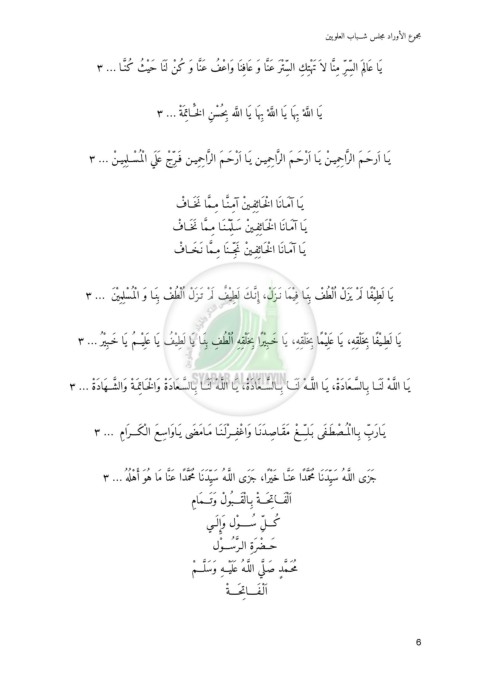 مجموع الأوراد مجلس شباب العلويين
يَا عَالِمَ السِّرِّ مِنَّا لاَ تَهْتِكِ السِّتْرَ عَنَّا وَ عَافِنَا وَاعْفُ عَنَّا وَ كُنْ لَنَا حَيْثُ كُنَّا ... ٣
يَا اللَّهْ بِهَا يَا اللَّهْ بِهَا يَا اللَّه بِحُسْنِ الْخَاتِمَةْ ... ٣
يَـا اَرحَـمَ الرَّاحِمِيـنْ يَـا اَرْحَـمَ الرَّاحِمِيـن يَـا اَرْحَـمَ الرَّاحِمِيـن فَـرِّجْ عَلَى الْمُسْـلِمِيـنْ ... ٣
يَـا آمَـانَا الْخَـائِفِيـنْ آمِـنَّـا مِـمَّا نَخَـافْ
يَـا آمَـانَا الْخَـائِفِيـنْ سَـلِّمْـنَـا مِـمَّا نَخَـافْ
يَـا آمَـانَا الْخَـائِفِيـنْ نَجِّـنَا مِـمَّا نَـخَـافْ
يَا لَطِيْفًا لَمْ يَزَلْ اُلْطُفْ بِنَا فِيْمَا نَزَلْ، إِنَّكَ لَطِيْفٌ لَمْ تَـزَلْ اُلْطُفْ بِنَـا وَ الْمُسْلِمِيْنَ ... ٣
يَا لَطِـيْفًا بِخَلْقِهِ، يَا عَلِيْمًا بِخَلْقِهِ، يَا خَـبِيْرًا بِخَلْقِهِ اُلْطُف بِنَـا يَا لَطِيْفُ يَا عَلِيْـمُ يَا خَـبِيْرُ ... ٣
يَا اللَّـهْ لَنَـا بِـالسَّـعَادَةْ، يَا اللَّـهْ لَنَـا بِـالسَّـعَادَةْ، يَـا اللَّهْ لَنَـا بِالسَّـعَادَةْ وَالْخَاتِمَـةْ وَالشَّـهَادَةْ ... ٣
يَـارَبِّ بِـالْمُـصْطَفَى بَلِّـغْ مَقَـاصِـدَنَا وَاغْفِـرْلَنَـا مَـامَضَى يَـاوَاسِـعَ الْكَـرَامِ ... ٣
جَزَى اللَّـهُ سَيِّدَنَا مُحَمَّدًا عَنَّـا خَيْرًا، جَزَى اللَّـهُ سَيِّدَنَا مُحَمَّدًا عَنَّا مَا هُوَ أَهْلُهُ ... ٣
اَلْفَـاتِحَـةْ بِـالْقَـبُـولْ وَتَـمَـامِ
كُـلِّ سُـــوْل وَإِلَـى
حَـضْرَةِ الرَّسُــوْل
مُحَمَّدٍ صَلَّى اللَّهُ عَلَيْـهِ وَسَلَّــمْ
اَلْفَـــاتِحَـــةْ
6